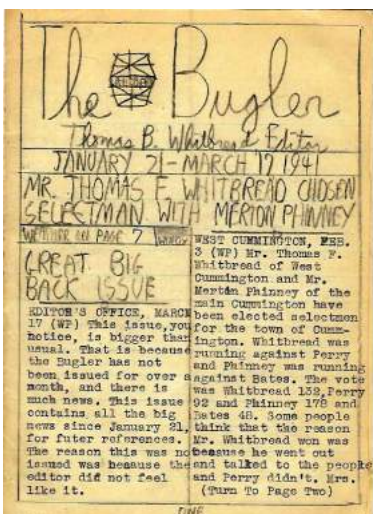 The Bugler
Thomas B. Whitbread Editor
JANUARY 21-MARCH 17 1941
MR. THOMAS F. WHITBREAD CHOSEN
SELECTMAN WITH MERTON PHINNEY
WEATHER ON PAGE 7
WINDY
GREAT BIG
BACK ISSUE
EDITOR'S OFFICE, MARCH
17 (WP) This issue, you
notice, is bigger than
usual. That is because
the Bugler has not
been issued for over a
month, and there is
much news. This issue
contains all the big
news since January 21,
for futer references.
The reason this was not
issued was because the
editor did not feel
like it.
WEST CUMMINGTON, FEB.
3 (WP) Mr. Thomas F.
Whitbread of West
Cummington and Mr.
Merton Phinney of the
main Cummington have
been elected selectmen
for the town of Cumm-
ington. Whitbread was
running against Perry
and Phinney was running
against Bates. The vote
was Whitbread 132, Perry
92 and Phinney 178 and
Bates 48. Some people
think that the reason
Mr. Whitbread won was
because he went out
and talked to the people
and Perry didn't. Mrs.
(Turn To Page Two)